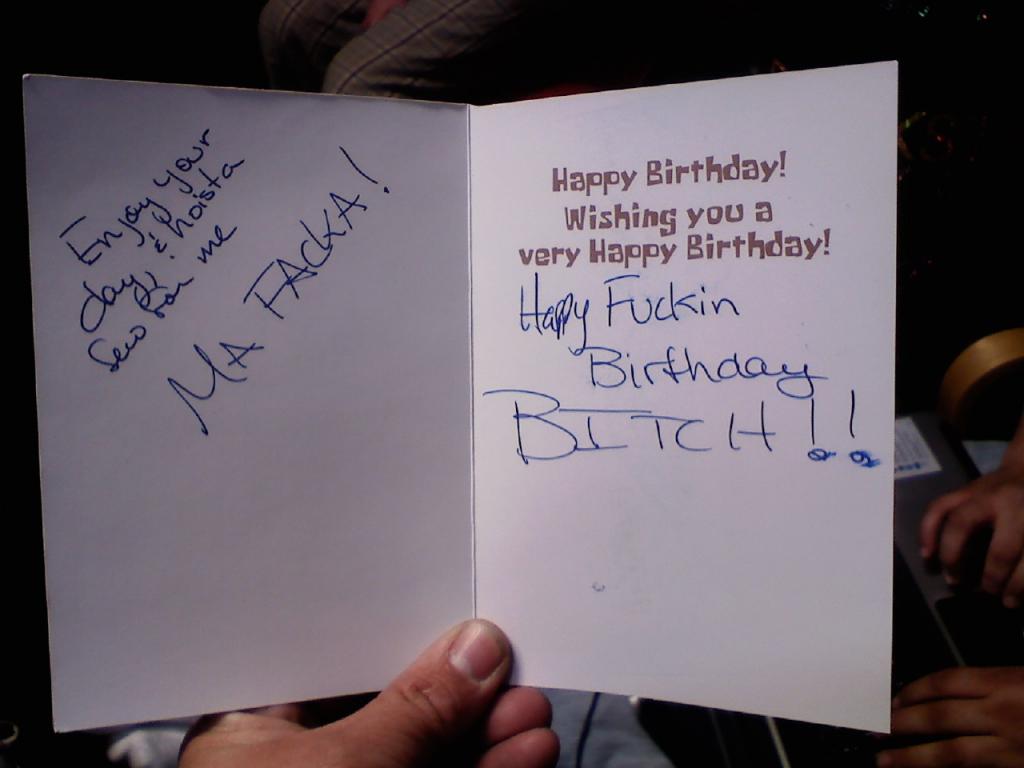 Enjoy your
day & hoist a
few for me
MA FACKA!
Happy Birthday!
Wishing you a
very Happy Birthday!
Happy Fuckin
Birthday
BITCH!!